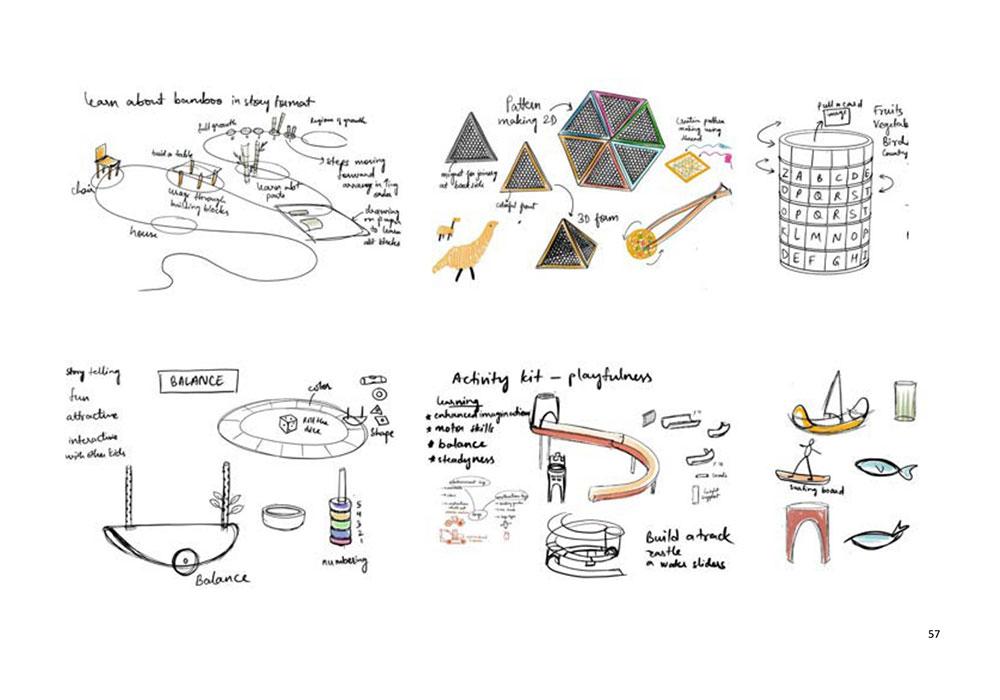 learn about bamboo in story format
full growth
Regions of growth
build a table
chair
learn abt
parts
through
building blocks
house
steps moving
forward
drawing
on paper
to learn
abt blocks
Pattern
making 2D
magnet for joinery
at back side
colorful print
3D form
Creative pattern
making using
thread
Pull a card
image
Fruits
Vegetab
Bird
Country
Z A B C D E
O P Q R S T
O P Q R S T
K L M N O P
D E F G H I
Story telling
fun
attractive
interactive
with other kids
BALANCE
color
Roll the
dice
Shape
5
4
3
2
1
numbering
Balance
Activity kit – playfulness
learning
* enhanced imagination
* motor skills
* balance
* steadyness
Build a track
castle
a water sliders
surfing board
57